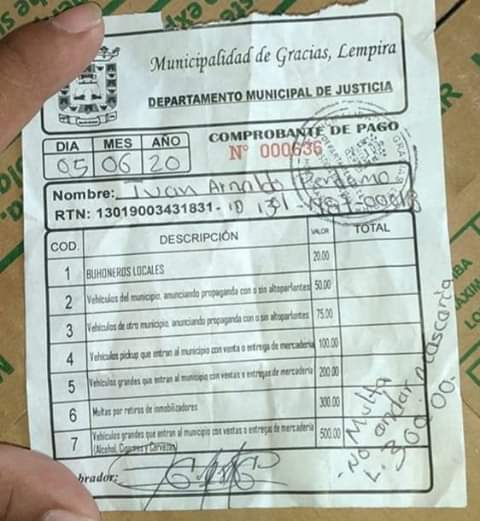 Municipalidad de Gracias, Lempira
DEPARTAMENTO MUNICIPAL DE JUSTICIA
DIA MES AÑO
05 06 20
COMPROBANTE DE PAGO
Nº 000636
Nombre: Ivan Arnaldo
RTN: 13019003431831-
COD. DESCRIPCIÓN VALOR TOTAL
1 BUHONEROS LOCALES 20.00
2 Vehículos del municipio, anunciando propaganda con o sin altoparlantes 50.00
3 Vehículos de otro municipio, anunciando propaganda con o sin altoparlantes 75.00
4 Vehículos pickup que entran al municipio con venta o entrega de mercadería 100.00
5 Vehículos grandes que entran al municipio con ventas o entregas de mercadería 200.00
6 Multas por retiros de inmobilizadores 300.00
7 Vehículos grandes que entran al municipio con ventas o entrega de mercadería 500.00
(Alcohol, Cigarros y Cervezas)
Multa
-No andar mascarilla
L. 300.00.
brador: